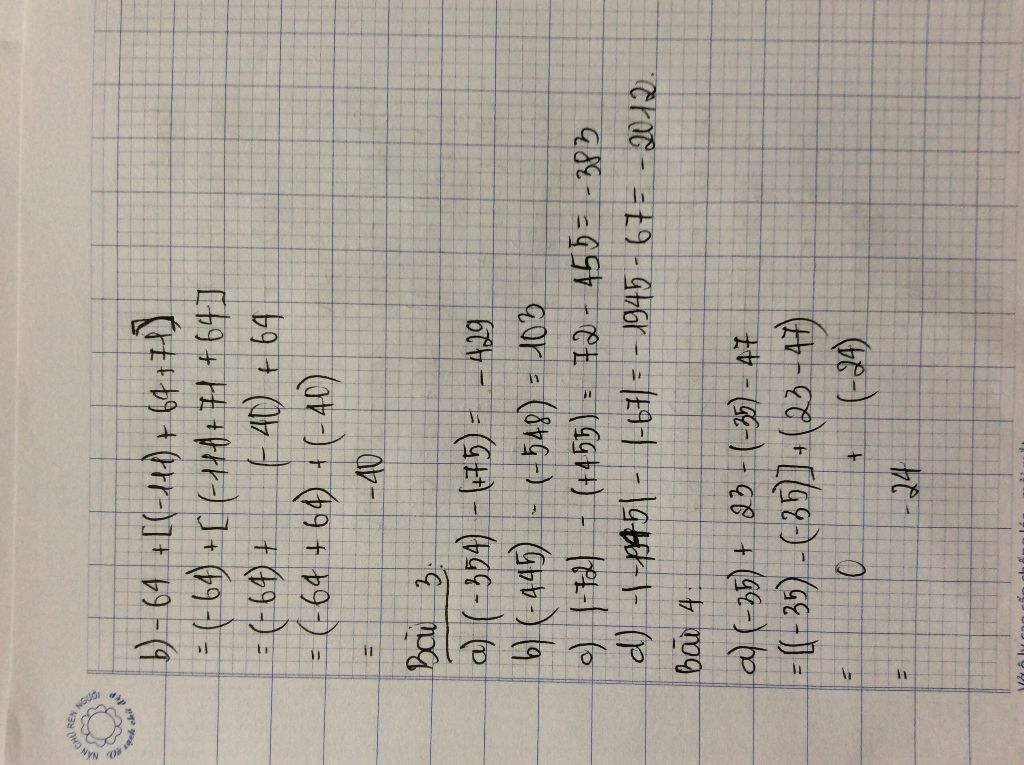 NẮN CHỮ RÈN NGƯỜI
b) -64 + [(-111) + 64 + 71]
= (-64) + [(-111) + 71 + 64]
= (-64) + (-40) + 64
= (-64 + 64) + (-40)
= -40
Bài 3:
a) (-354) - (+75) = -429
b) (-445) - (-548) = 103
c) |-72| - (+455) = 72 - 455 = -383
d) -|-1945| - |-67| = -1945 - 67 = -2012.
Bài 4:
a) (-35) + 23 - (-35) - 47
= [(-35) - (-35)] + (23 - 47)
= 0 + (-24)
= -24